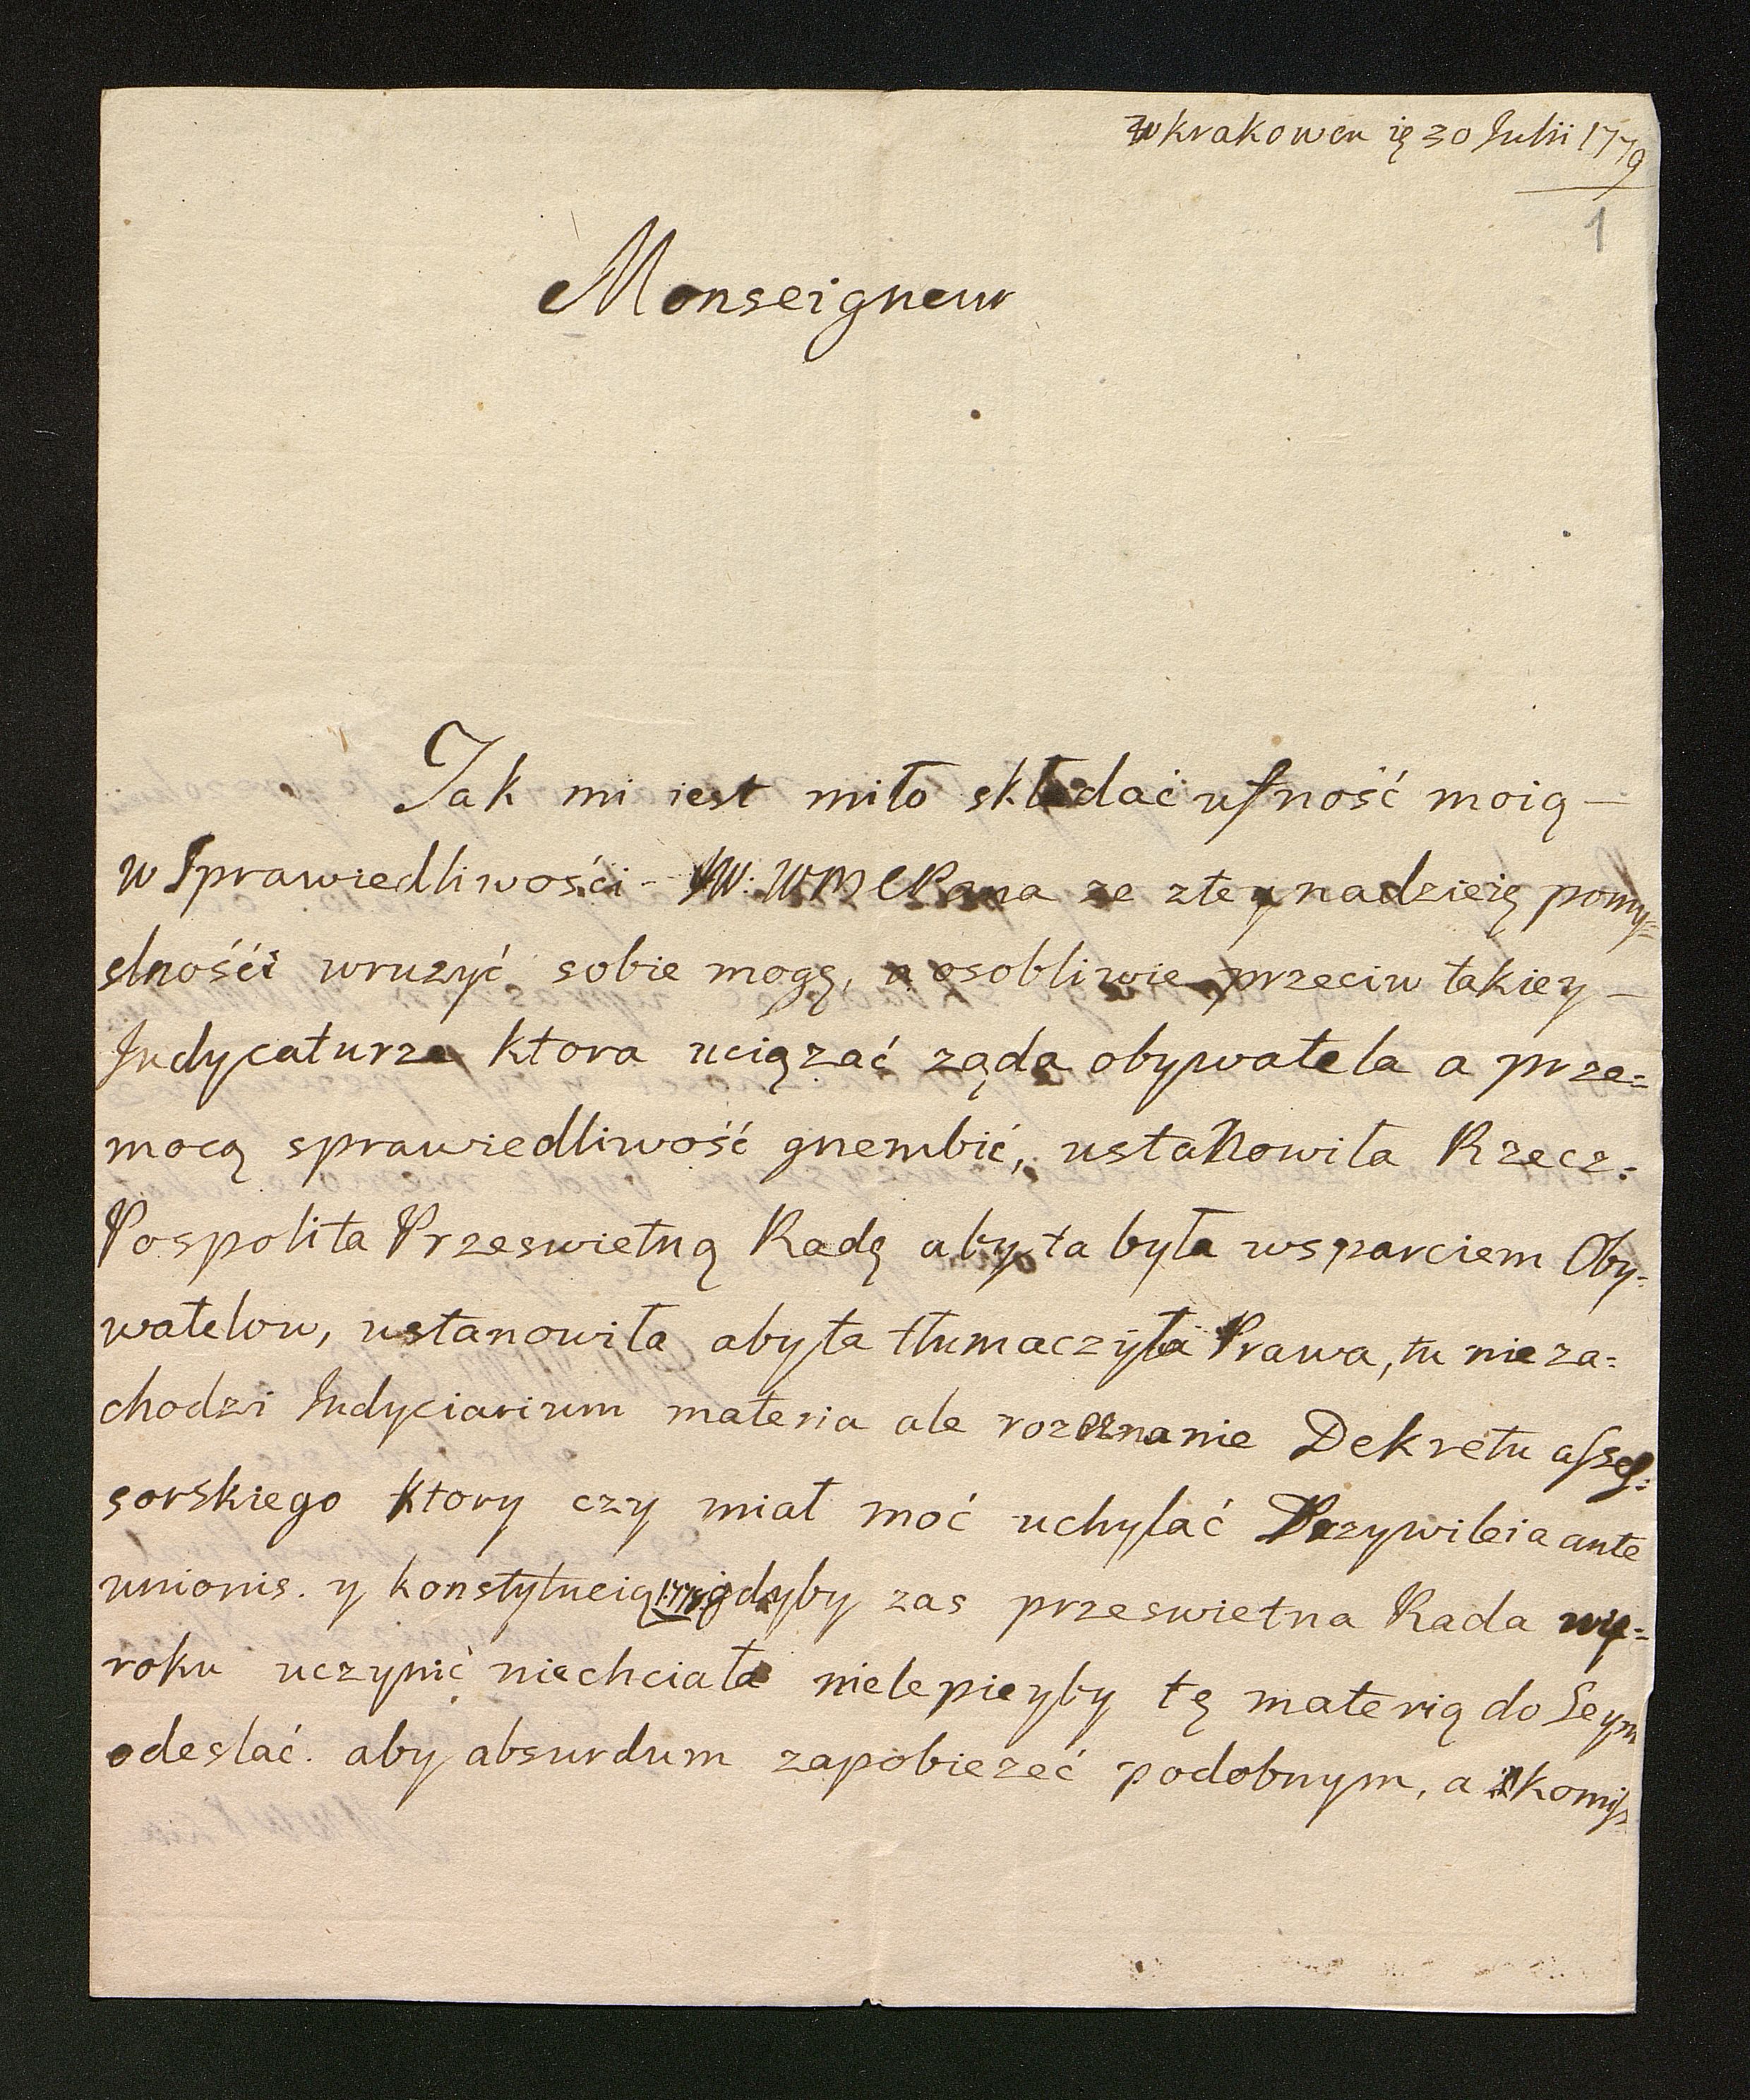 w krakowcu ię 30 Julii 1779
1
Monseigneur
Jak mi iest miło składać ufność moię —
w Sprawiedliwości - JW. WM Pana ze ztey nadzieię pomy=
slności wruzyć sobie mogę, a osobliwie przeciw takiey —
Judycaturze ktora uciązać ząda obywatela a prze=
mocą sprawiedliwość gnembić, ustanowiła Rzecz:
Pospolita Przeswietną Radę aby ta była wsparciem Oby-
watelow, ustanowiła aby ta tłumaczyła Prawa, tu nie za=
chodzi Judyciarium materia ale rozeznanie Dekretu asses:
sorskiego ktory czy miał moć uchylać Przywileia ante
unionis. y konstytucią gdyby zas przeswietna Rada wy=
roku uczynić niechciała nielepieyby tę materią do Seym
odeslać. aby absurdum zapobiezeć podobnym, a komis